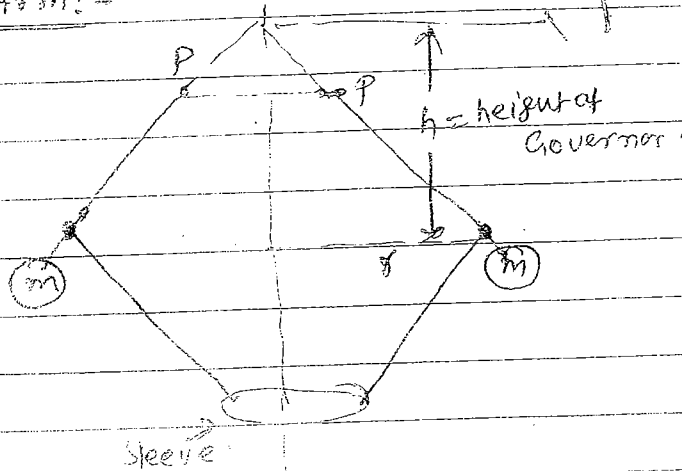 P
P
h = height of
Governor
r
m
m
Sleeve